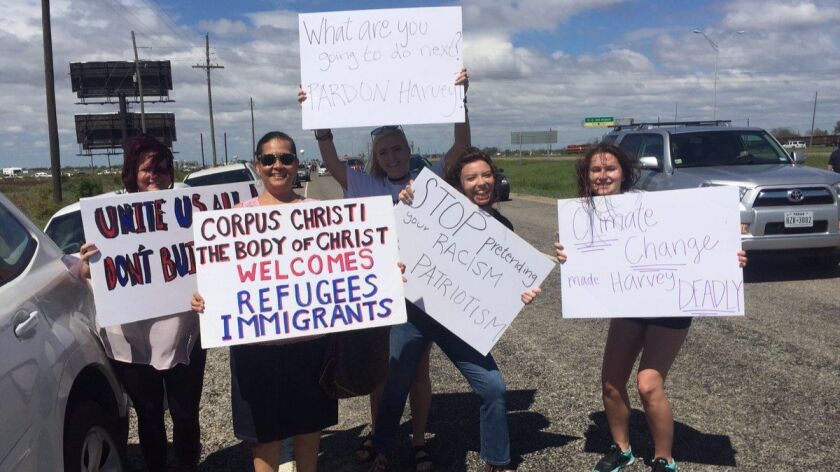 What are you
going to do next?
PARDON Harvey!
UNITE US ALL
DON'T
CORPUS CHRISTI
THE BODY OF CHRIST
WELCOMES
REFUGEES
IMMIGRANTS
STOP pretending
your RACISM
PATRIOTISM
Climate
Change
made Harvey
DEADLY